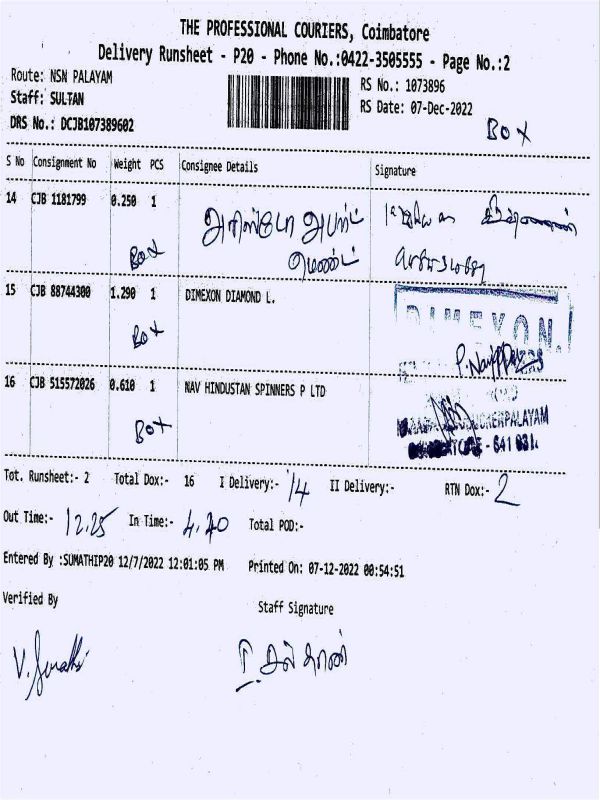 THE PROFESSIONAL COURIERS, Coimbatore
Delivery Runsheet - P20 - Phone No.:0422-3505555 - Page No.:2
Route: NSN PALAYAM
RS No.: 1073896
Staff: SULTAN
RS Date: 07-Dec-2022
DRS No.: DCJB107389602
BOX
S No Consignment No Weight PCS Consignee Details Signature
14 CJB 1181799 0.250 1 அரிஸ்டோ அபார்ட்
மெண்ட்
Box
15 CJB 88744300 1.290 1 DIMEXON DIAMOND L.
DIMEXON.
Box
16 CJB 515572026 0.610 1 NAV HINDUSTAN SPINNERS P LTD
Box
- 641 031.
Tot. Runsheet:- 2 Total Dox:- 16 I Delivery:- 14 II Delivery:- RTN Dox:- 2
Out Time:- 12.25 In Time:- 4.40 Total POD:-
Entered By :SUMATHIP20 12/7/2022 12:01:05 PM Printed On: 07-12-2022 00:54:51
Verified By Staff Signature